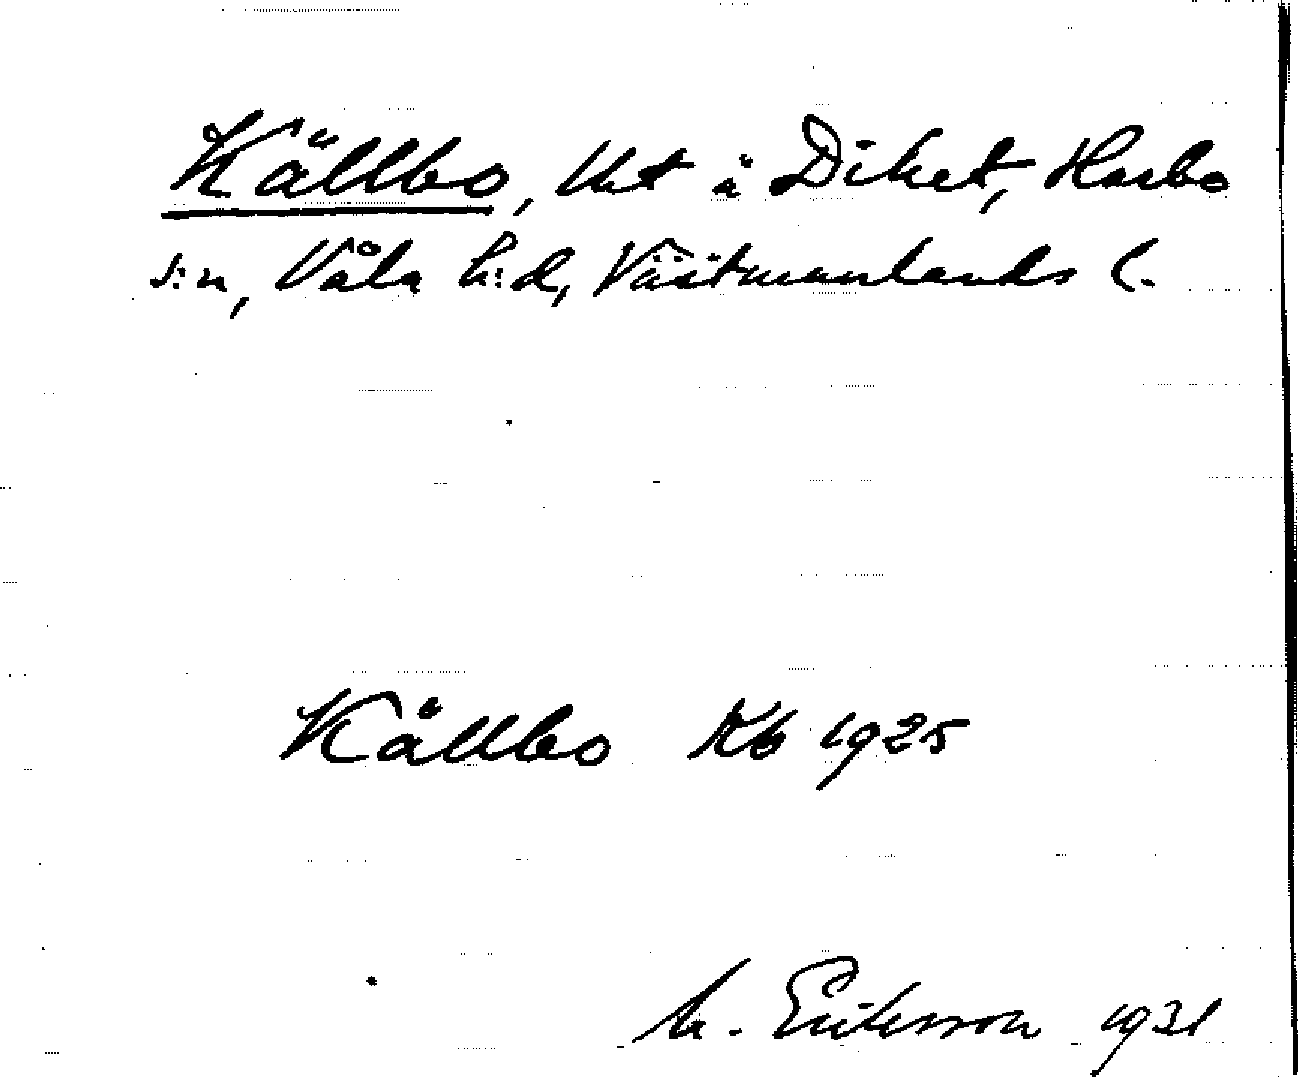 Källbo, tht å Diket, Harbo
s:n, Våla h:d, Västmanlands l.
Källbo Kb 1925
M. Eriksson 1931